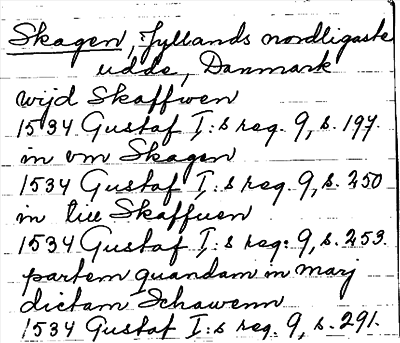 Skagen, Jyllands nordligaste
udde, Danmark
wijd Skaffwen
1534 Gustaf I:s reg. 9, s. 197.
in om Skagen
1534 Gustaf I:s reg. 9, s. 250
in till Skaffuen
1534 Gustaf I:s reg. 9, s. 253.
partem quandam in marj
dictam Schawenn
1534 Gustaf I:s reg. 9, s. 291.